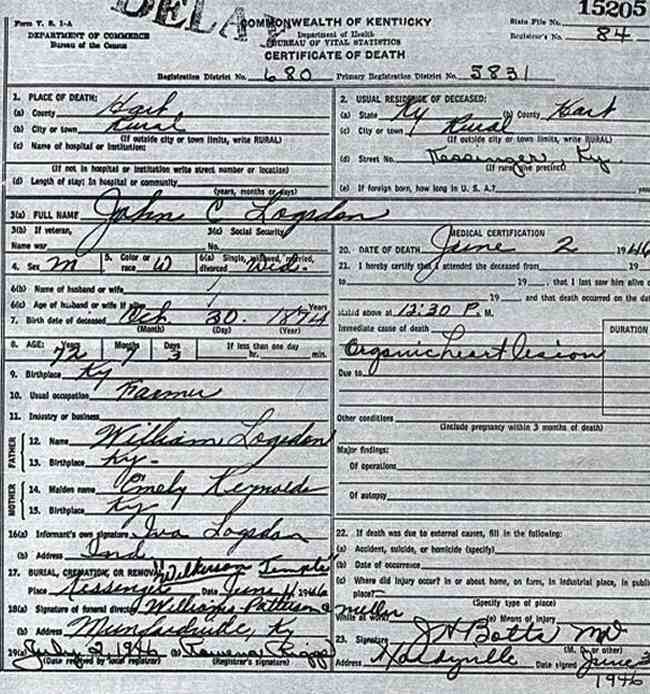 DELAY
15205
Form V. S. 1-A
DEPARTMENT OF COMMERCE
Bureau of the Census
COMMONWEALTH OF KENTUCKY
Department of Health
BUREAU OF VITAL STATISTICS
CERTIFICATE OF DEATH
State File No.
Registrar's No. 84
Registration District No. 680 Primary Registration District No. 5831
1. PLACE OF DEATH:
(a) County Hart
(b) City or town Rural
(If outside city or town limits, write RURAL)
(c) Name of hospital or institution:
(If not in hospital or institution write street number or location)
(d) Length of stay: In hospital or community
(years, months or days)
2. USUAL RESIDENCE OF DECEASED:
(a) State Ky (b) County Hart
(c) City or town Rural
(If outside city or town limits, write RURAL)
(d) Street No. Kessinger, Ky.
(If rural give precinct)
(e) If foreign born, how long in U. S. A.?
3(a) FULL NAME John C Logsdon
3(b) If veteran,
Name war
3(c) Social Security
No.
4. Sex M 5. Color or race W 6(a) Single, widowed, married, divorced Wid.
6(b) Name of husband or wife
6(c) Age of husband or wife if alive Years
7. Birth date of deceased Oct 30. 1874
(Month) (Day) (Year)
8. AGE: Years 72 Months 7 Days 3 If less than one day
hr. min.
9. Birthplace Ky
10. Usual occupation Farmer
11. Industry or business
FATHER
12. Name William Logsdon
13. Birthplace Ky-
MOTHER
14. Maiden name Emely Reynolds
15. Birthplace Ky
16(a) Informant's own signature Iva Logsdon
(b) Address Ind.
17. BURIAL, CREMATION, OR REMOVAL Wilkerson Temple
Place Kessenger Date June 4 1946
18(a) Signature of funeral director Williams-Patteson & Miller
(b) Address Munfordville, Ky
19(a) July 2 1946 (b)
(Date received by local registrar) (Registrar's signature)
MEDICAL CERTIFICATION
20. DATE OF DEATH June 2 1946
21. I hereby certify that I attended the deceased from 19
to 19, that I last saw him alive
19 and that death occurred on the dat
stated above at 12:30 P. M.
Immediate cause of death
DURATION
Organic heart lesion
Due to
Other conditions
(Include pregnancy within 3 months of death)
Major findings:
Of operations
Of autopsy
22. If death was due to external causes, fill in the following:
(a) Accident, suicide, or homicide (specify)
(b) Date of occurrence
(c) Where did injury occur? in or about home, on farm, in industrial place, in publi
place?
(Specify type of place)
While at work? (e) Means of injury
23. Signature J H Botts MD
(M. D. or other)
Address Hardyville Date signed June 3
1946